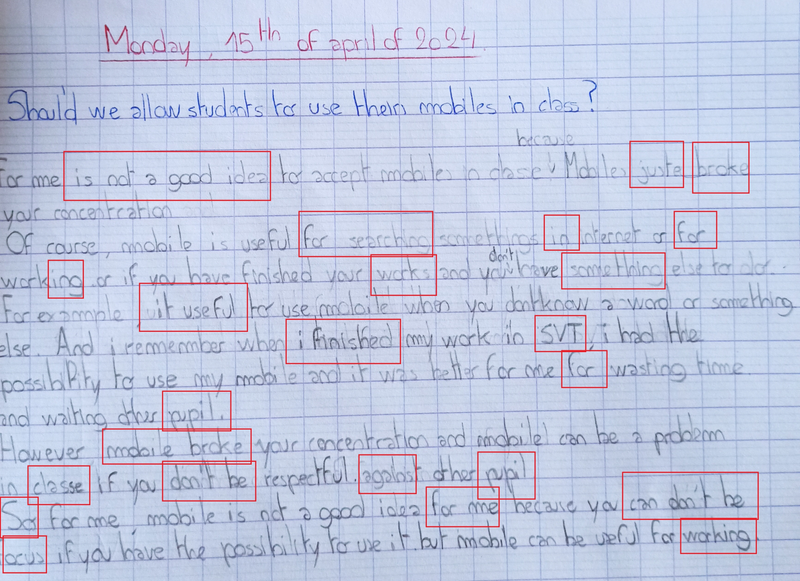 Monday, 15Th of april of 2024.
Should we allow students to use their mobiles in class?
because
For me is not a good idea to accept mobiles in classe. Mobiles juste broke
your concentration
Of course, mobile is useful for searching somethings in internet or for
working or if you have finished your works and you don't have something else to do.
For example it useful to use mobile when you don't know a word or something
else. And i remember when i finished my work in SVT, i had the
possibility to use my mobile and it was better for me for wasting time
and waiting other pupil.
However mobile broke your concentration and mobile can be a problem
in classe if you don't be respectful against other pupil
So for me, mobile is not a good idea for me because you can don't be
focus if you have the possibility to use it but mobile can be useful for working